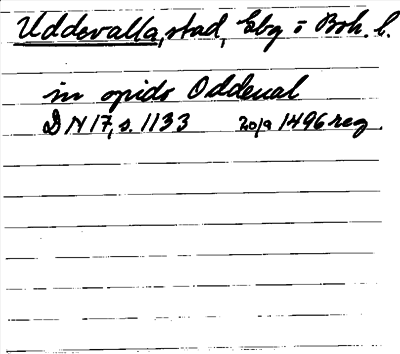 Uddevalla, stad, Gbg o Boh. l.
in opido Oddeual
DN 17, s. 1133 20/9 1496 reg.